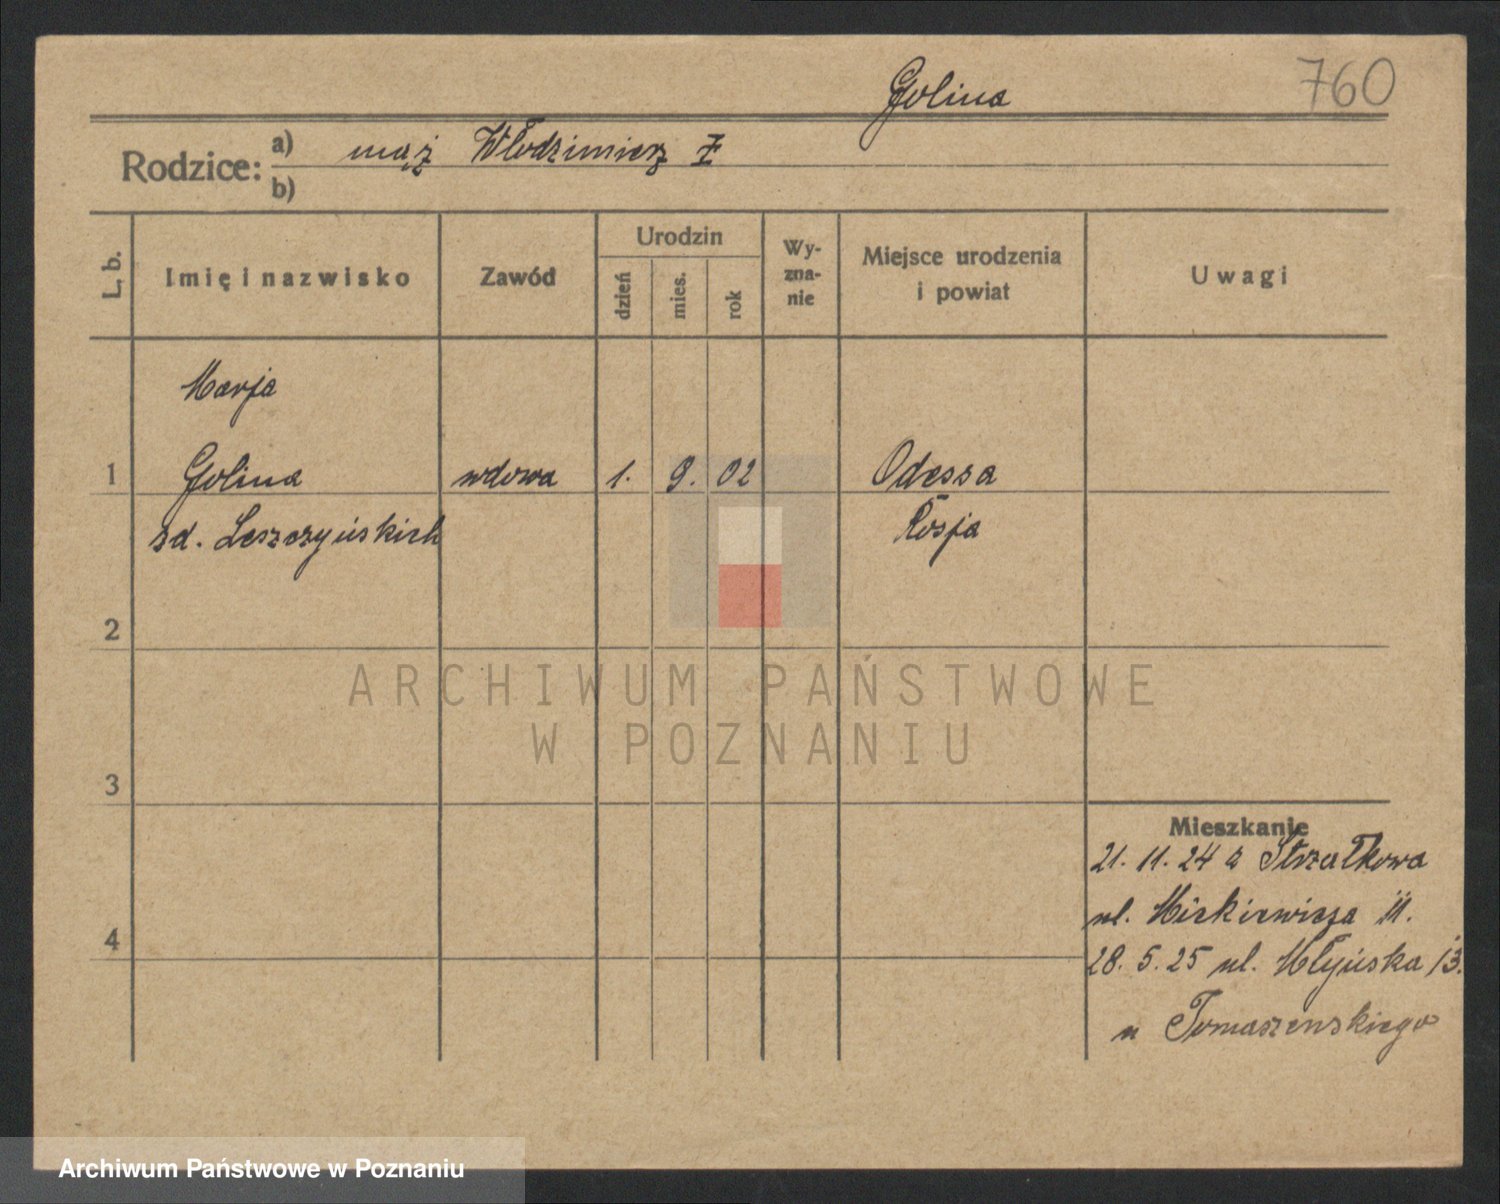 Golina
760
Rodzice: a) mąż Włodzimierz
b)
L. b.
Imię i nazwisko
Zawód
Urodzin
dzień
mies.
rok
Wy-
zna-
nie
Miejsce urodzenia
i powiat
Uwagi
Marja
1 Golina wdowa 1. 9. 02 Odessa
zd. Leszczyńskich Rosja
2
3
4
ARCHIWUM PAŃSTWOWE
W POZNANIU
Mieszkanie
21. 11. 24 z Strzałkowa
ul. Mickiewicza 11.
28. 5. 25 ul. Młyńska 13.
u Tomaszewskiego
Archiwum Państwowe w Poznaniu